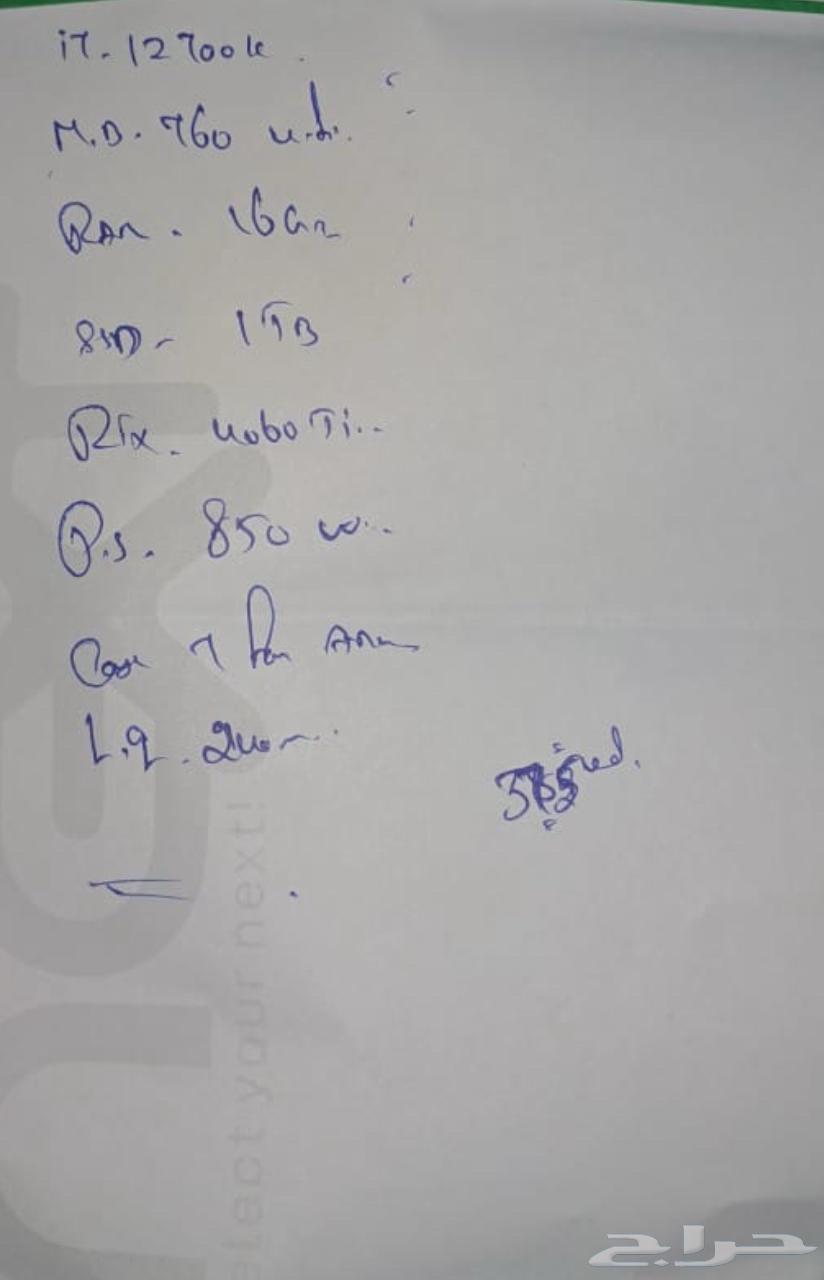 i7- 12700k
M.B. 760
Ram. 16G
SSD- 1TB
RTX. 4060 Ti..
P.s. 850 w..
Case 7 Fan
L.q. 240
elect your next!
حراج